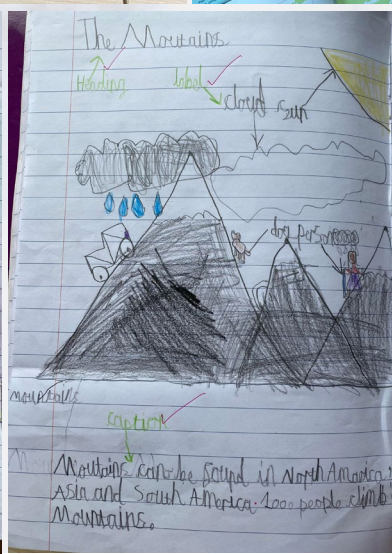 The Moutains
Heading
label
cloud sun
dog person
mountains
caption
Moutains can be found in North America
Asia and South America. 1000 people climb
Mountains.